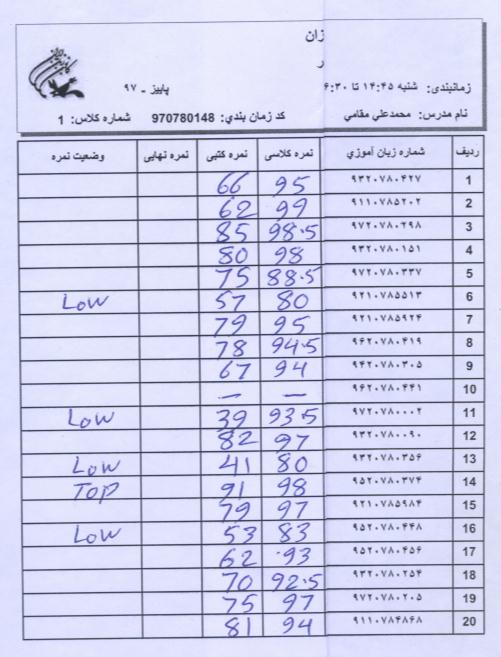 زان
ر
زمانبندی: شنبه ۱۴:۴۵ تا ۶:۳۰ پاییز ـ ۹۷
نام مدرس: محمدعلي مقامي کد زمان بندي: 970780148 شماره کلاس: 1
ردیف شماره زبان آموزي نمره کلاسی نمره کتبی نمره نهایی وضعیت نمره
1 ۹۳۲۰۷۸۰۴۲۷ 95 66
2 ۹۱۱۰۷۸۵۲۰۲ 99 62
3 ۹۷۲۰۷۸۰۲۹۸ 98.5 85
4 ۹۳۲۰۷۸۰۱۵۱ 98 80
5 ۹۷۲۰۷۸۰۳۳۷ 88.5 75
6 ۹۲۱۰۷۸۵۵۱۳ 80 57 Low
7 ۹۲۱۰۷۸۵۹۲۴ 95 79
8 ۹۴۲۰۷۸۰۴۱۹ 94.5 78
9 ۹۴۲۰۷۸۰۳۰۵ 94 67
10 ۹۶۲۰۷۸۰۴۴۱ – –
11 ۹۷۲۰۷۸۰۰۰۲ 93.5 39 Low
12 ۹۳۲۰۷۸۰۰۹۰ 97 82
13 ۹۳۲۰۷۸۰۳۵۶ 80 41 Low
14 ۹۵۲۰۷۸۰۳۷۴ 98 91 Top
15 ۹۲۱۰۷۸۵۹۸۴ 97 79
16 ۹۵۲۰۷۸۰۴۴۸ 83 53 Low
17 ۹۵۲۰۷۸۰۴۵۶ 93 62
18 ۹۳۲۰۷۸۰۲۵۴ 92.5 70
19 ۹۷۲۰۷۸۰۲۰۵ 97 75
20 ۹۱۱۰۷۸۴۸۶۸ 94 81